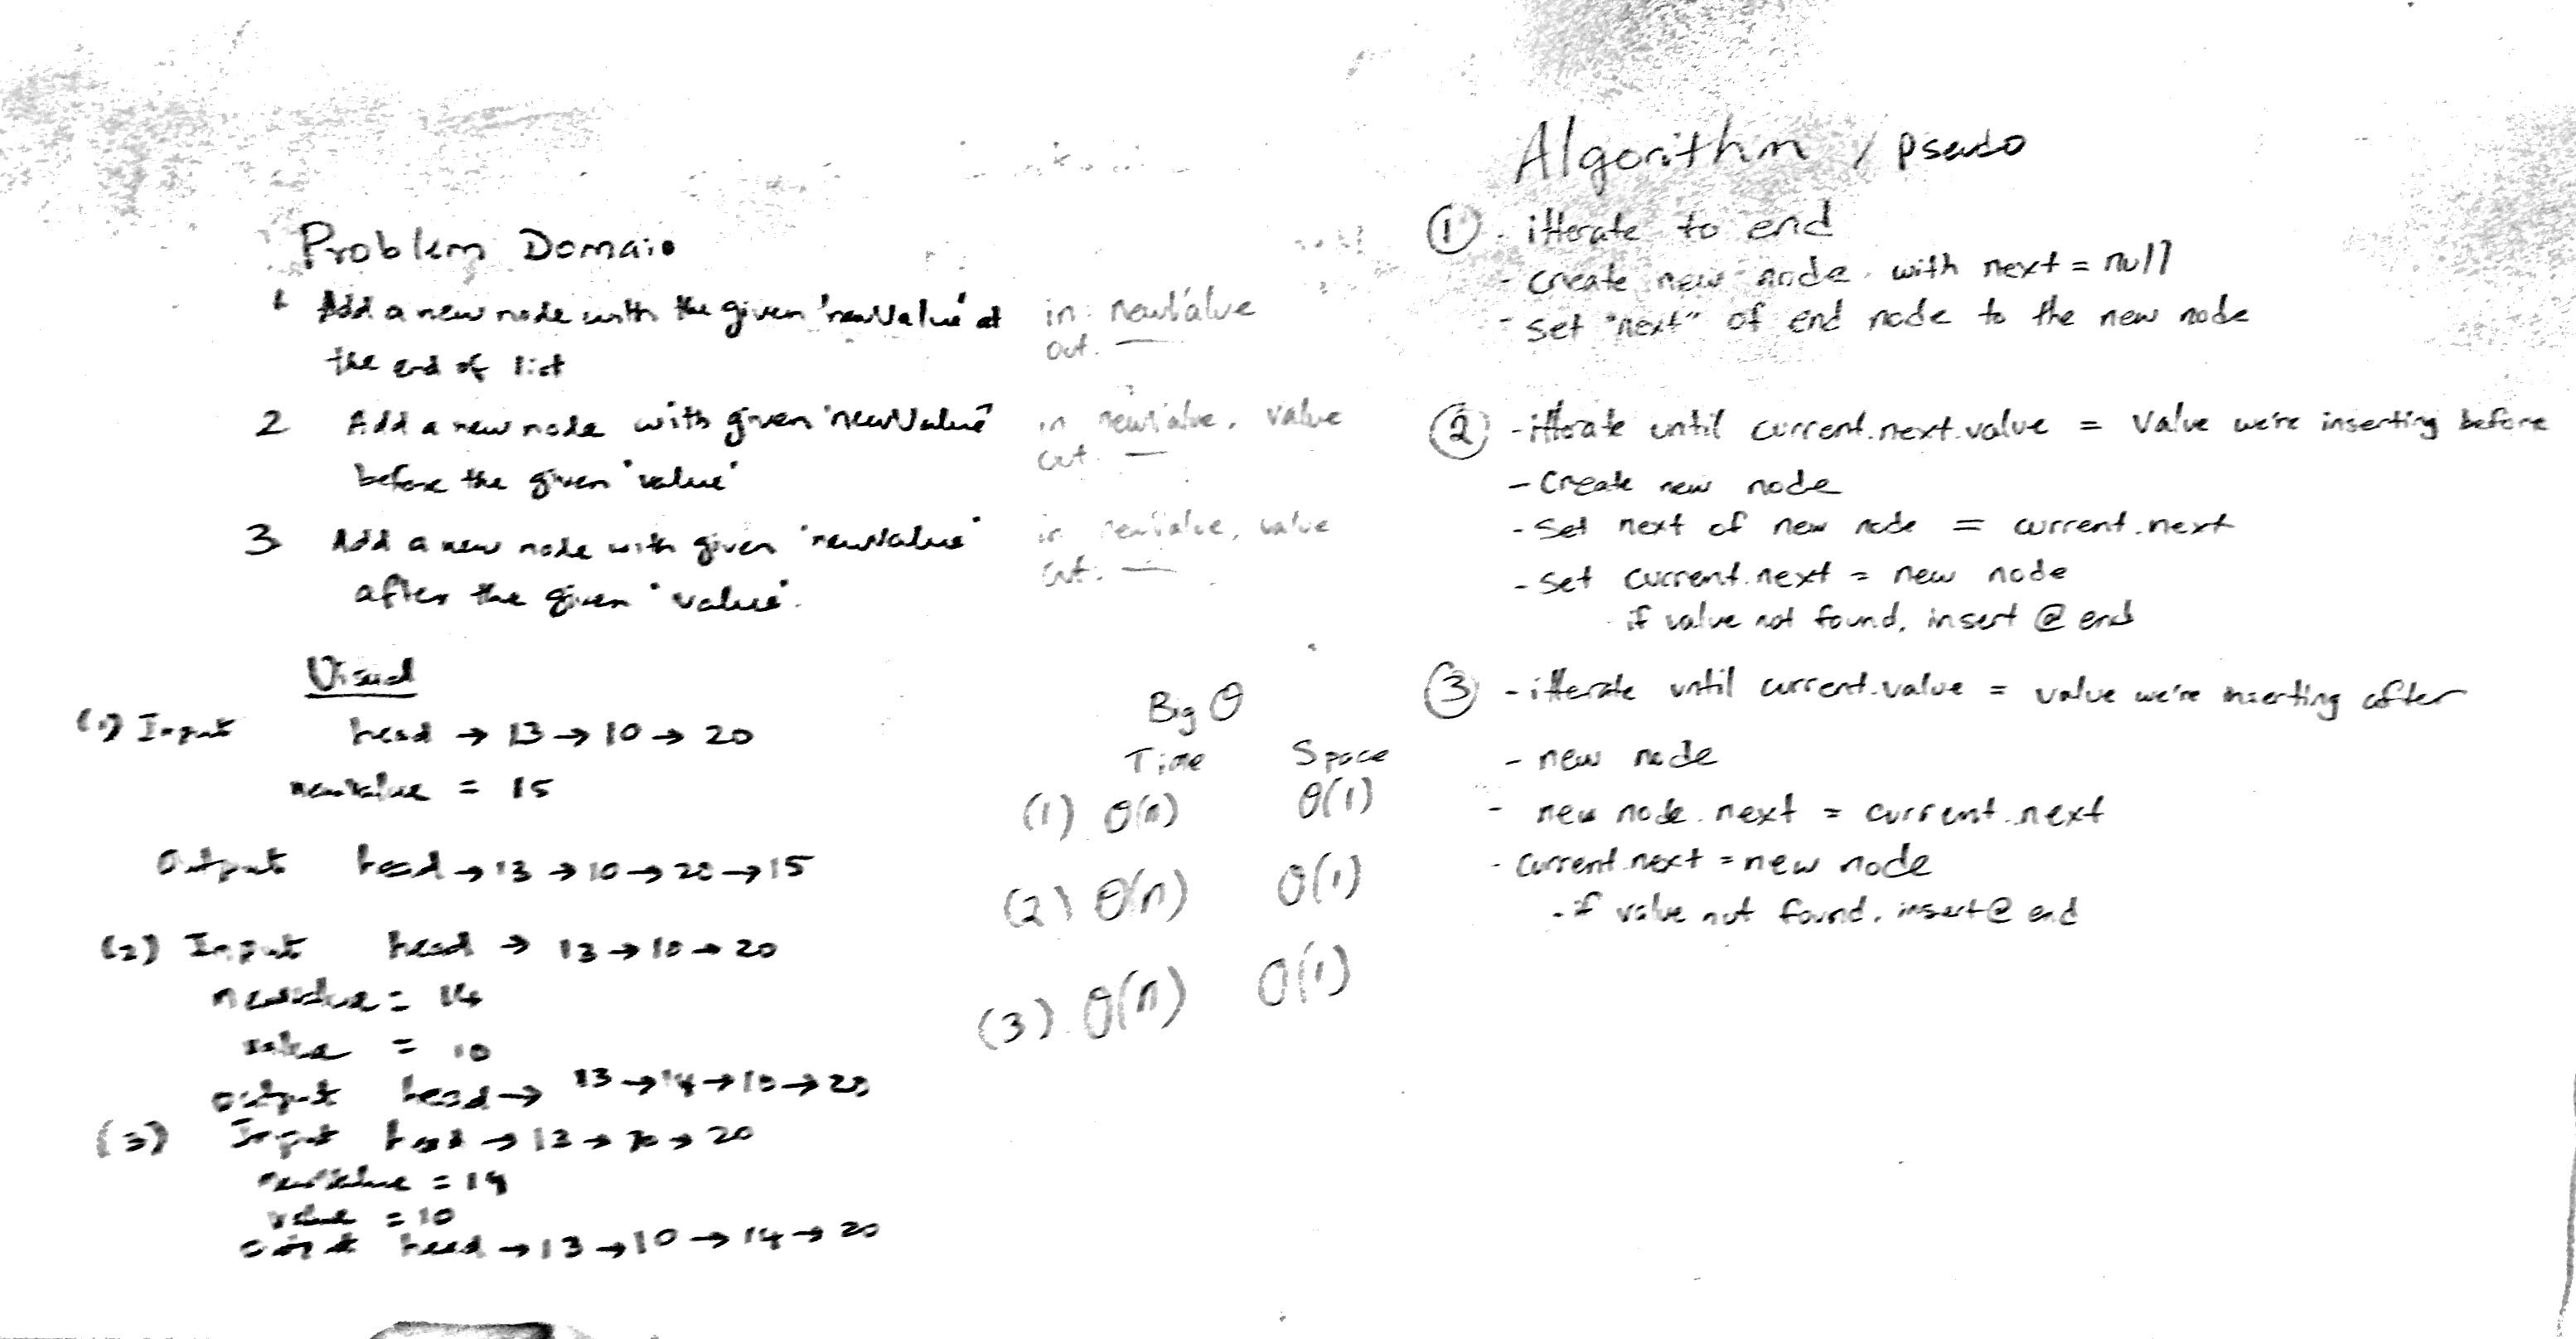 Problem Domain
1 Add a new node with the given 'newValue' at
the end of list
in: newValue
out: —
2 Add a new node with given 'newValue'
before the given 'value'
in newValue, value
out. —
3 Add a new node with given 'newValue'
after the given 'value'.
in newValue, value
out: —
Visual
(1) Input head → 13 → 10 → 20
newValue = 15
Output head → 13 → 10 → 20 → 15
(2) Input head → 13 → 10 → 20
newValue = 14
value = 10
output head → 13 → 14 → 10 → 20
(3) Input head → 13 → 10 → 20
newValue = 14
value = 10
output head → 13 → 10 → 14 → 20
Big O
Time Space
(1) O(n) O(1)
(2) O(n) O(1)
(3) O(n) O(1)
Algorithm / Pseudo
① - itterate to end
- create new node with next = null
- set "next" of end node to the new node
② - itterate until current.next.value = Value we're inserting before
- Create new node
- Set next of new node = current.next
- Set current.next = new node
- if value not found, insert @ end
③ - itterate until current.value = value we're inserting after
- new node
- new node.next = current.next
- current.next = new node
- if value not found, insert @ end